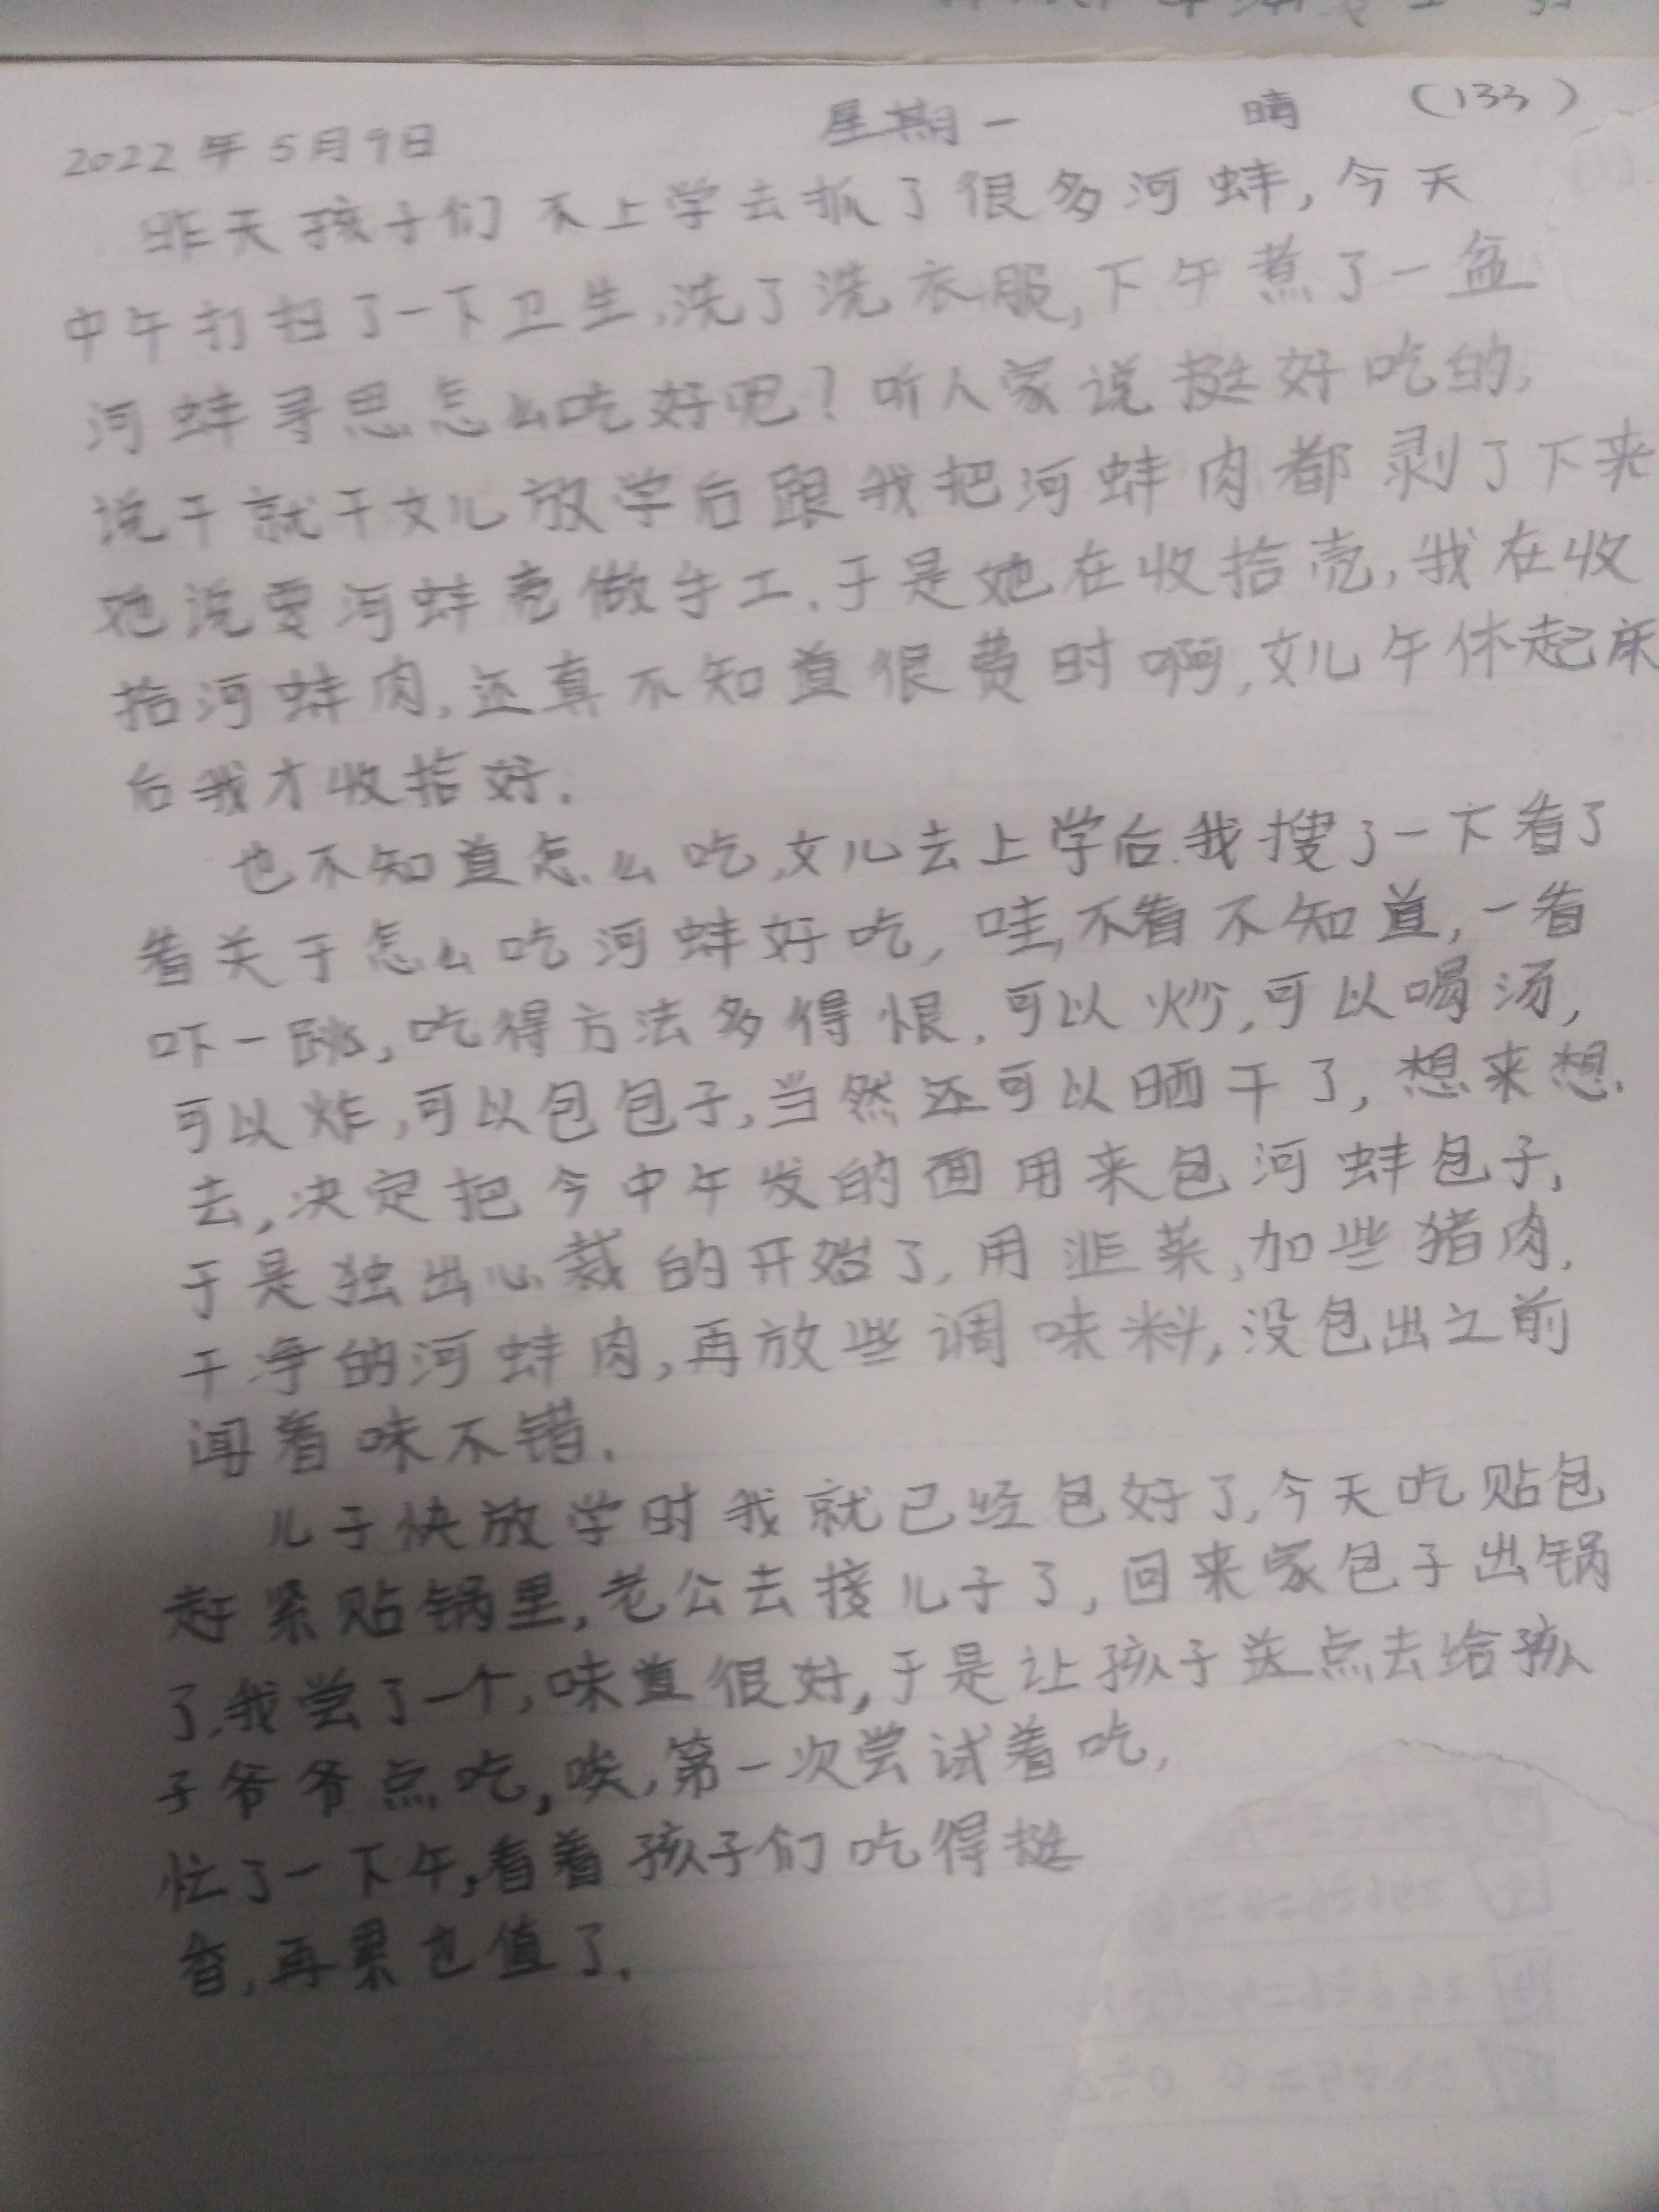 2022年5月9日 星期一 晴 (133)
昨天孩子们不上学去抓了很多河蚌,今天
中午打扫了一下卫生,洗了洗衣服,下午煮了一盆
河蚌寻思怎么吃好呢?听人家说挺好吃的,
说干就干文儿放学后跟我把河蚌肉都剥了下来
她说要河蚌壳做手工.于是她在收拾壳,我在收
拾河蚌肉,还真不知道很费时啊,文儿午休起床
后我才收拾好.
也不知道怎么吃,文儿去上学后.我搜了一下看了
看关于怎么吃河蚌好吃,哇,不看不知道,一看
吓一跳,吃得方法多得恨,可以炒,可以喝汤,
可以炸,可以包包子,当然还可以晒干了,想来想.
去,决定把今中午发的面用来包河蚌包子,
于是独出心裁的开始了,用韭菜,加些猪肉,
干净的河蚌肉,再放些调味料,没包出之前
闻着味不错.
儿子快放学时我就已经包好了,今天吃贴包
赶紧贴锅里,老公去接儿子了,回来家包子出锅
了.我尝了一个,味道很好,于是让孩子送点去给孩
子爷爷点吃,唉,第一次尝试着吃,
忙了一下午,看着孩子们吃得挺
香,再累也值了.